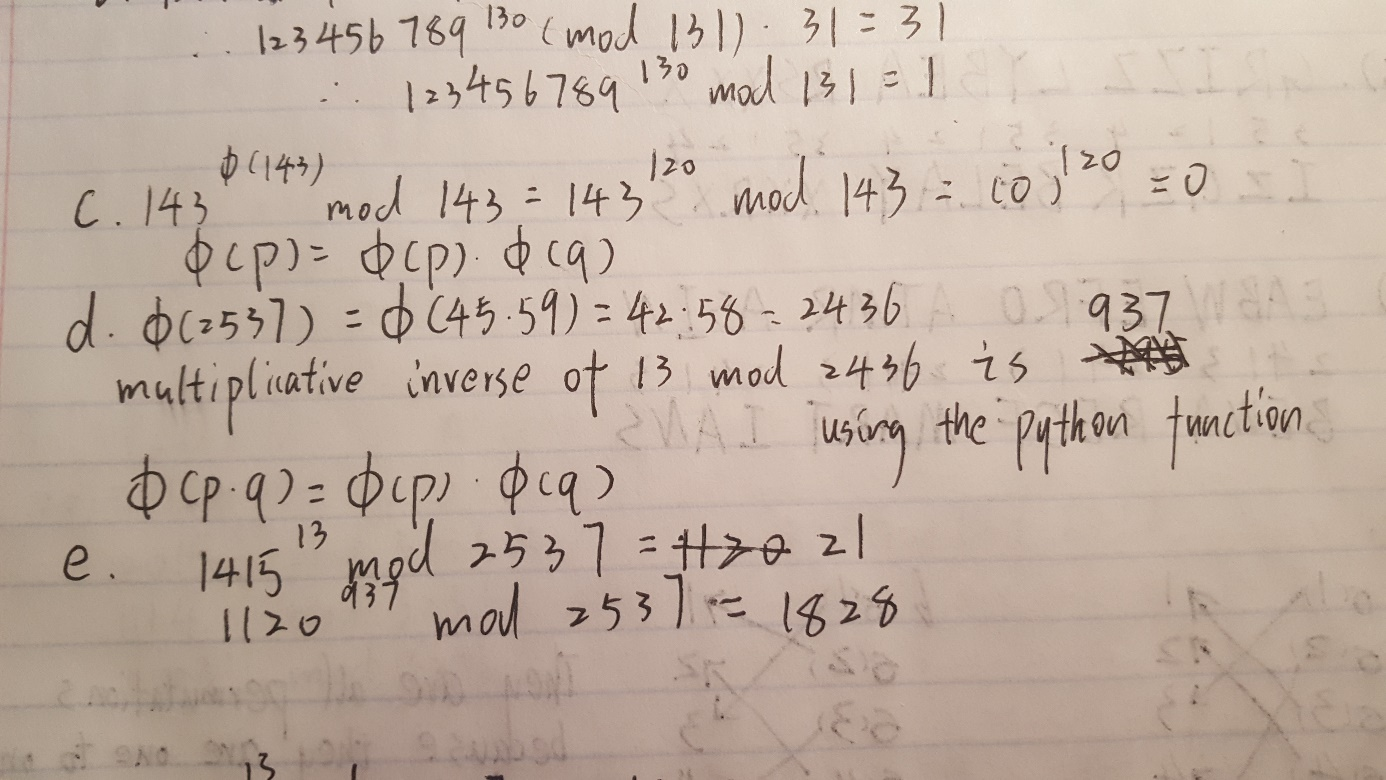 ∴ 123456789^130 (mod 131) · 31 = 31
∴ 123456789^130 mod 131 = 1
c. 143^ϕ(143) mod 143 = 143^120 mod 143 = (0)^120 = 0
ϕ(p) = ϕ(p) · ϕ(q)
d. ϕ(2537) = ϕ(45·59) = 42·58 = 2436 937
multiplicative inverse of 13 mod 2436 is
using the python function
ϕ(p·q) = ϕ(p) · ϕ(q)
e. 1415^13 mod 2537 = 1120 21
1120^937 mod 2537 = 1828
13